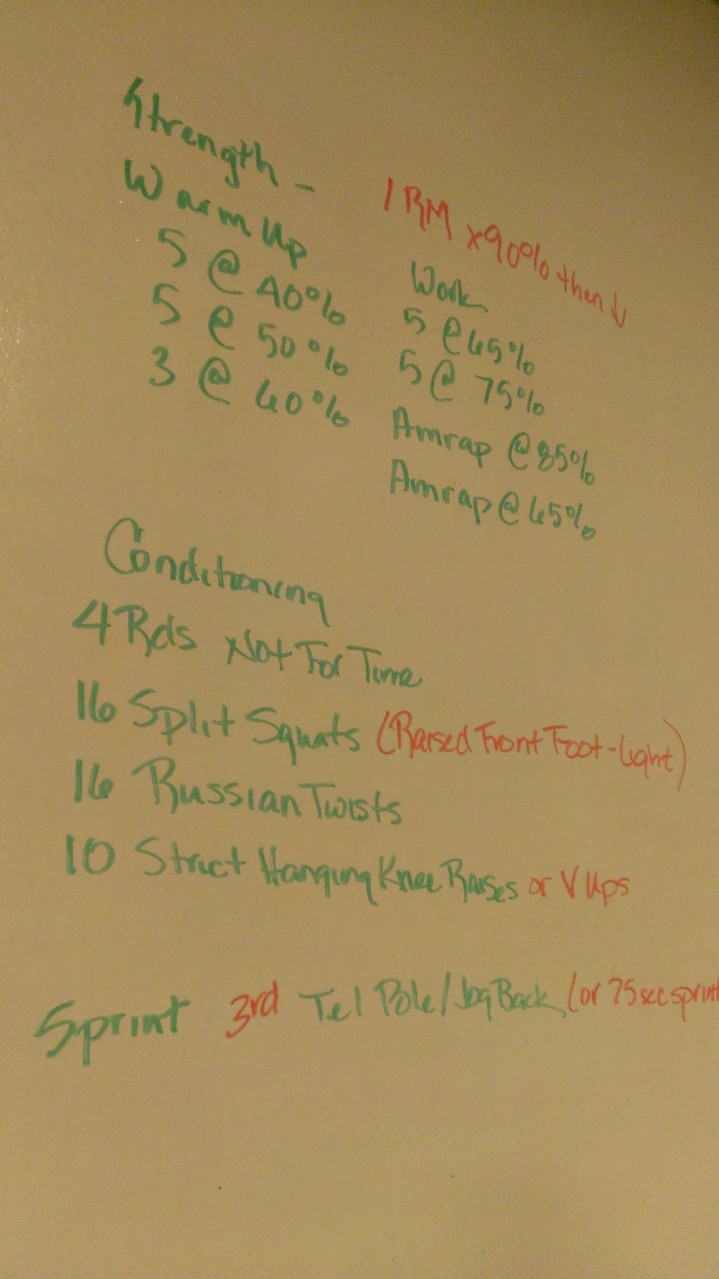 Strength -
1RM x90% then ↓
Warm Up
5 @ 40%
5 @ 50%
3 @ 60%
Work
5 @ 65%
5 @ 75%
Amrap @ 85%
Amrap @ 65%
Conditioning
4 Rds Not For Time
16 Split Squats (Raised Front Foot - Light)
16 Russian Twists
10 Strict Hanging Knee Raises or V Ups
Sprint 3rd Tel Pole / Jog Back (or 75 sec sprint